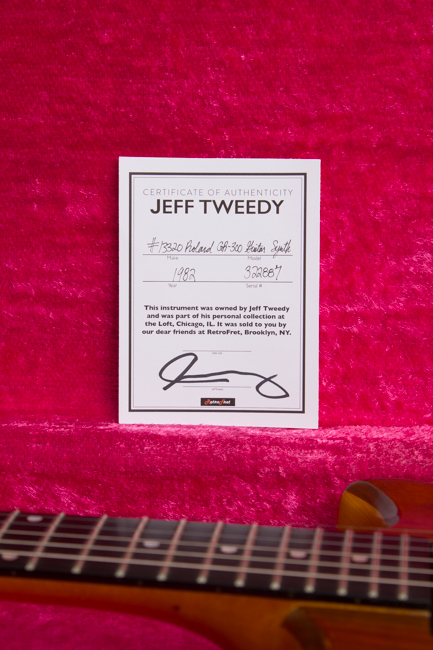 CERTIFICATE OF AUTHENTICITY
JEFF TWEEDY
#13320 Roland GR-300 Guitar Synth
Make Model
1982 322887
Year Serial #
This instrument was owned by Jeff Tweedy
and was part of his personal collection at
the Loft, Chicago, IL. It was sold to you by
our dear friends at RetroFret, Brooklyn, NY.
RetroFret